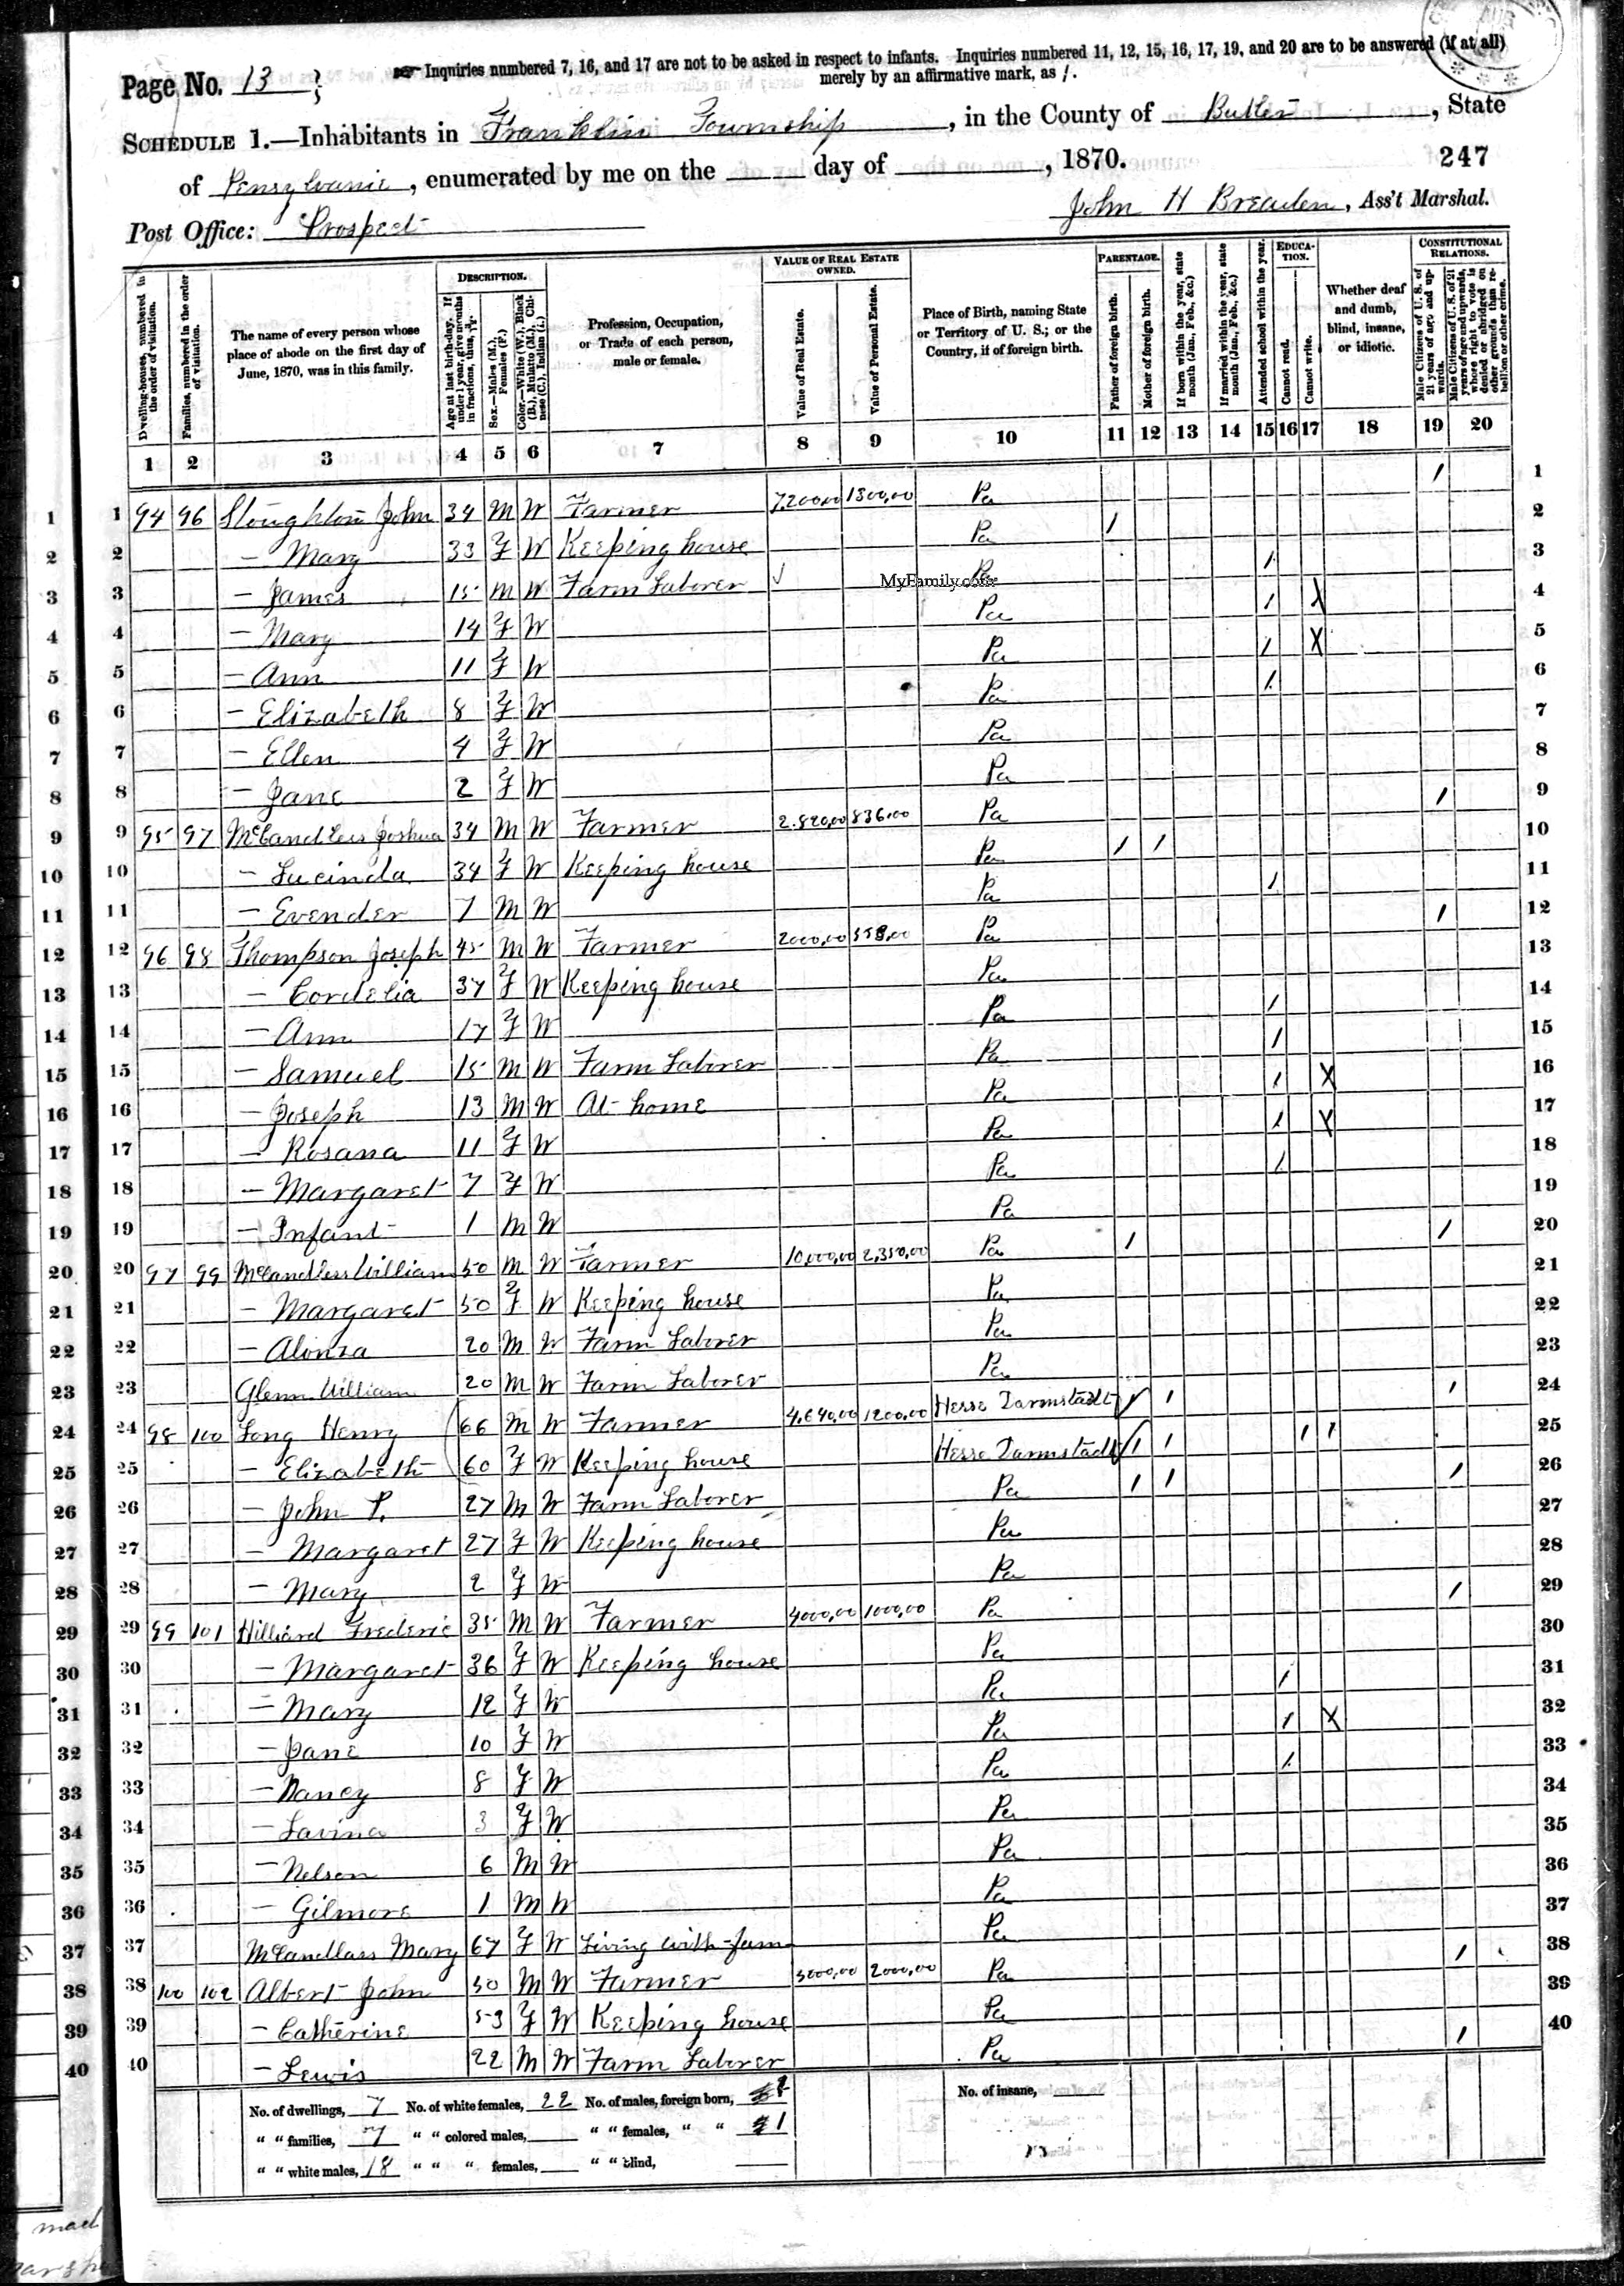 Page No. 13
Inquiries numbered 7, 16, and 17 are not to be asked in respect to infants. Inquiries numbered 11, 12, 15, 16, 17, 19, and 20 are to be answered (if at all) merely by an affirmative mark, as /.
SCHEDULE 1.—Inhabitants in Franklin Township, in the County of Butler, State
of Pensylvania, enumerated by me on the day of , 1870.
247
Post Office: Prospect
John H Breaden, Ass't Marshal.
DESCRIPTION.
VALUE OF REAL ESTATE OWNED.
PARENTAGE.
EDUCATION.
CONSTITUTIONAL RELATIONS.
Dwelling-houses, numbered in the order of visitation.
Families, numbered in the order of visitation.
The name of every person whose place of abode on the first day of June, 1870, was in this family.
Age at last birth-day. If under 1 year, give months in fractions, thus,
Sex.—Males (M.), Females (F.)
Color.—White (W.), Black (B.), Mulatto (M.), Chinese (C.), Indian (I.)
Profession, Occupation, or Trade of each person, male or female.
Value of Real Estate.
Value of Personal Estate.
Place of Birth, naming State or Territory of U. S.; or the Country, if of foreign birth.
Father of foreign birth.
Mother of foreign birth.
If born within the year, state month (Jan. Feb., &c.)
If married within the year, state month (Jan. Feb., &c.)
Attended school within the year.
Cannot read.
Cannot write.
Whether deaf and dumb, blind, insane, or idiotic.
Male Citizens of U. S. of 21 years of age and upwards.
Male Citizens of U. S. of 21 years of age and upwards, whose right to vote is denied or abridged on other grounds than rebellion or other crime.
1 2 3 4 5 6 7 8 9 10 11 12 13 14 15 16 17 18 19 20
1 94 96 Sloughton John 34 M W Farmer 7,200,00 1300,00 Pa / 1
2 — Mary 33 F W Keeping house Pa / 2
3 — James 15 M W Farm Laborer Pa / 3
MyFamily.com
4 — Mary 14 F W Pa / X 4
5 — Ann 11 F W Pa / X 5
6 — Elizabeth 8 F W Pa / 6
7 — Ellen 4 F W Pa 7
8 — Jane 2 F W Pa 8
9 95 97 McCandless Joshua 34 M W Farmer 2.820,00 836.00 Pa / 9
10 — Lucinda 34 F W Keeping house Pa / / 10
11 — Evender 7 M W Pa / 11
12 96 98 Thompson Joseph 45 M W Farmer 2000,00 558,00 Pa / 12
13 — Cordelia 37 F W Keeping house Pa 13
14 — Ann 17 F W Pa / 14
15 — Samuel 15 M W Farm Laborer Pa / 15
16 — Joseph 13 M W At home Pa / X 16
17 — Rosana 11 F W Pa / X 17
18 — Margaret 7 F W Pa / 18
19 — Infant 1 M W Pa 19
20 97 99 McCandless William 50 M W Farmer 10,000,00 2,350,00 Pa / / 20
21 — Margaret 50 F W Keeping house Pa 21
22 — Alonza 20 M W Farm Laborer Pa 22
23 Glenn William 20 M W Farm Laborer Pa 23
24 98 100 Long Henry 66 M W Farmer 4,640,00 1200,00 Hesse Darmstadt / / / 24
25 — Elizabeth 60 F W Keeping house Hesse Darmstadt / / / / 25
26 — John P. 27 M W Farm Laborer Pa / / / 26
27 — Margaret 27 F W Keeping house Pa 27
28 — Mary 2 F W Pa 28
29 99 101 Hilliard Frederic 35 M W Farmer 4000,00 1000,00 Pa / 29
30 — Margaret 36 F W Keeping house Pa 30
31 — Mary 12 F W Pa / 31
32 — Jane 10 F W Pa / X 32
33 — Nancy 8 F W Pa / 33
34 — Lavina 3 F W Pa 34
35 — Nelson 6 M W Pa 35
36 — Gilmore 1 M W Pa 36
37 McCandlass Mary 67 F W Living with fam Pa 37
38 100 102 Albert John 50 M W Farmer 3000,00 2000,00 Pa / 38
39 — Catherine 53 F W Keeping house Pa 39
40 — Lewis 22 M W Farm Laborer Pa / 40
No. of dwellings, 7 No. of white females, 22 No. of males, foreign born, No. of insane,
" " families, 7 " " colored males, " " females, " " 1
" " white males, 18 " " " females, " " blind,